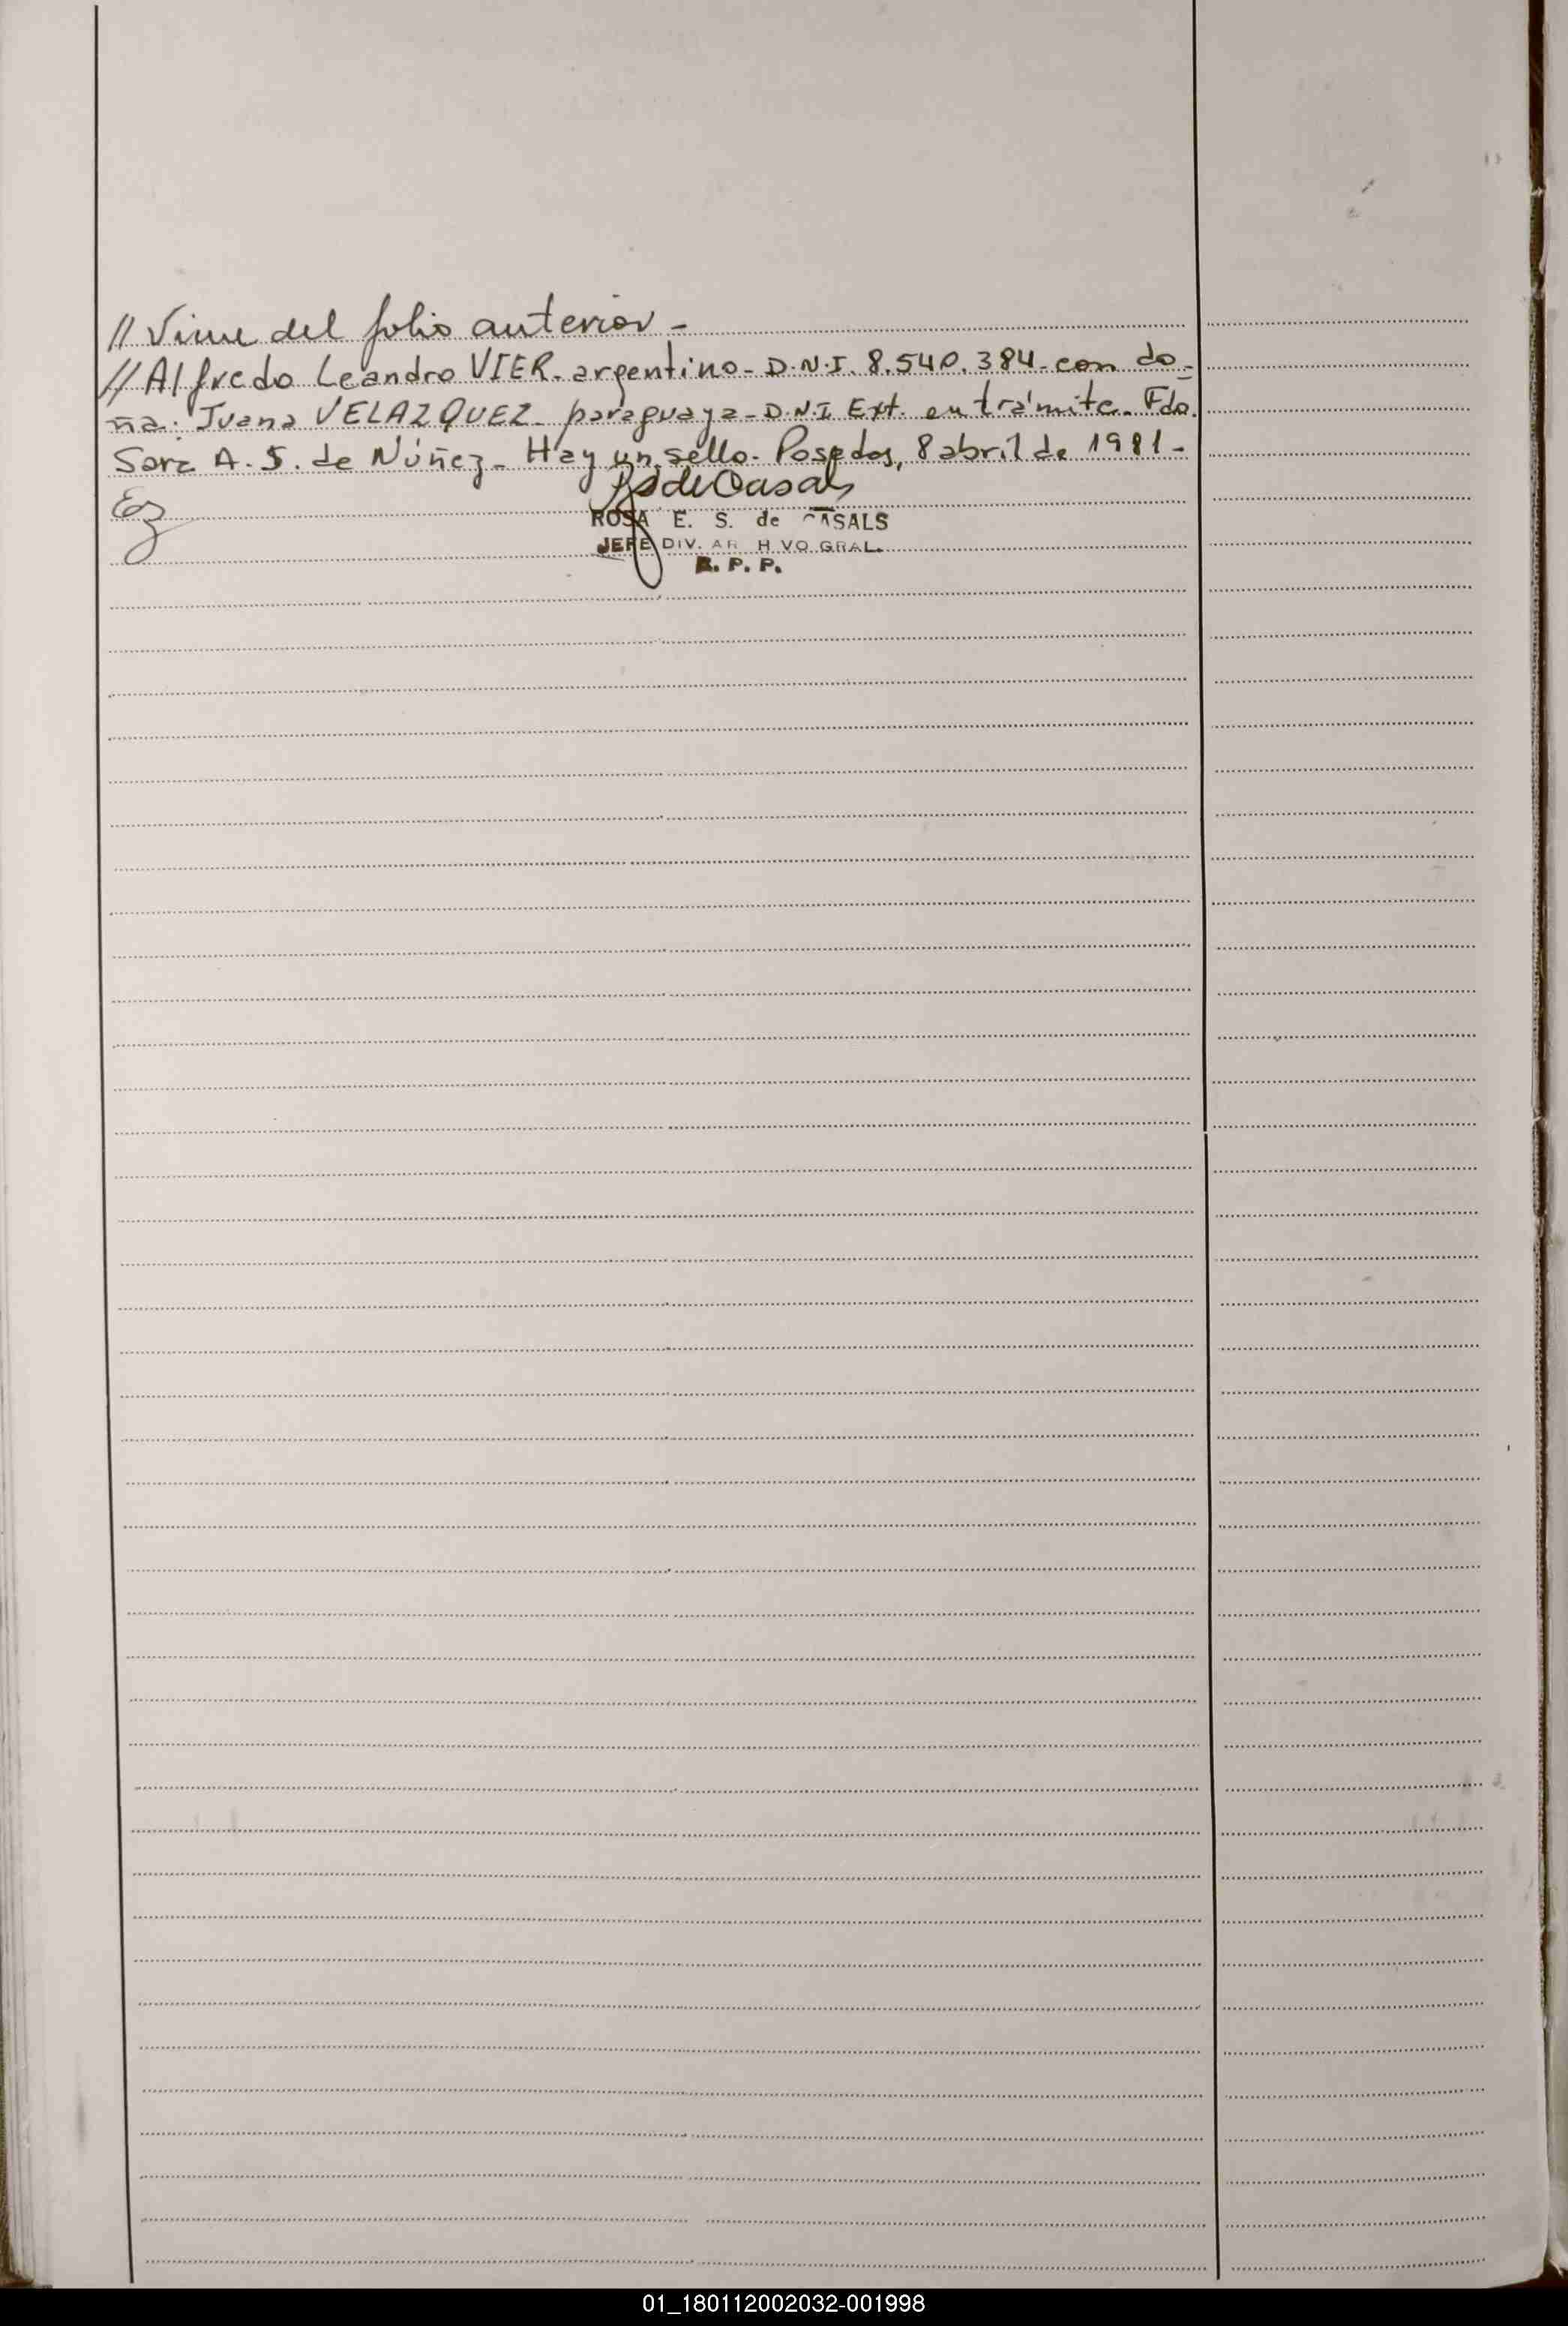 // Viene del folio anterior -
// Alfredo Leandro VIER - argentino - D.N.I. 8.540.384 - con do-
ña: Juana VELAZQUEZ - paraguaya - D.N.I Ext. en trámite - Fdo.
Sara A. S. de Núñez - Hay un sello - Posadas, 8 abril de 1981 -
de Casals
ROSA E. S. de CASALS
JEFE DIV. AR H VO GRAL.
R. P. P.
01_180112002032-001998